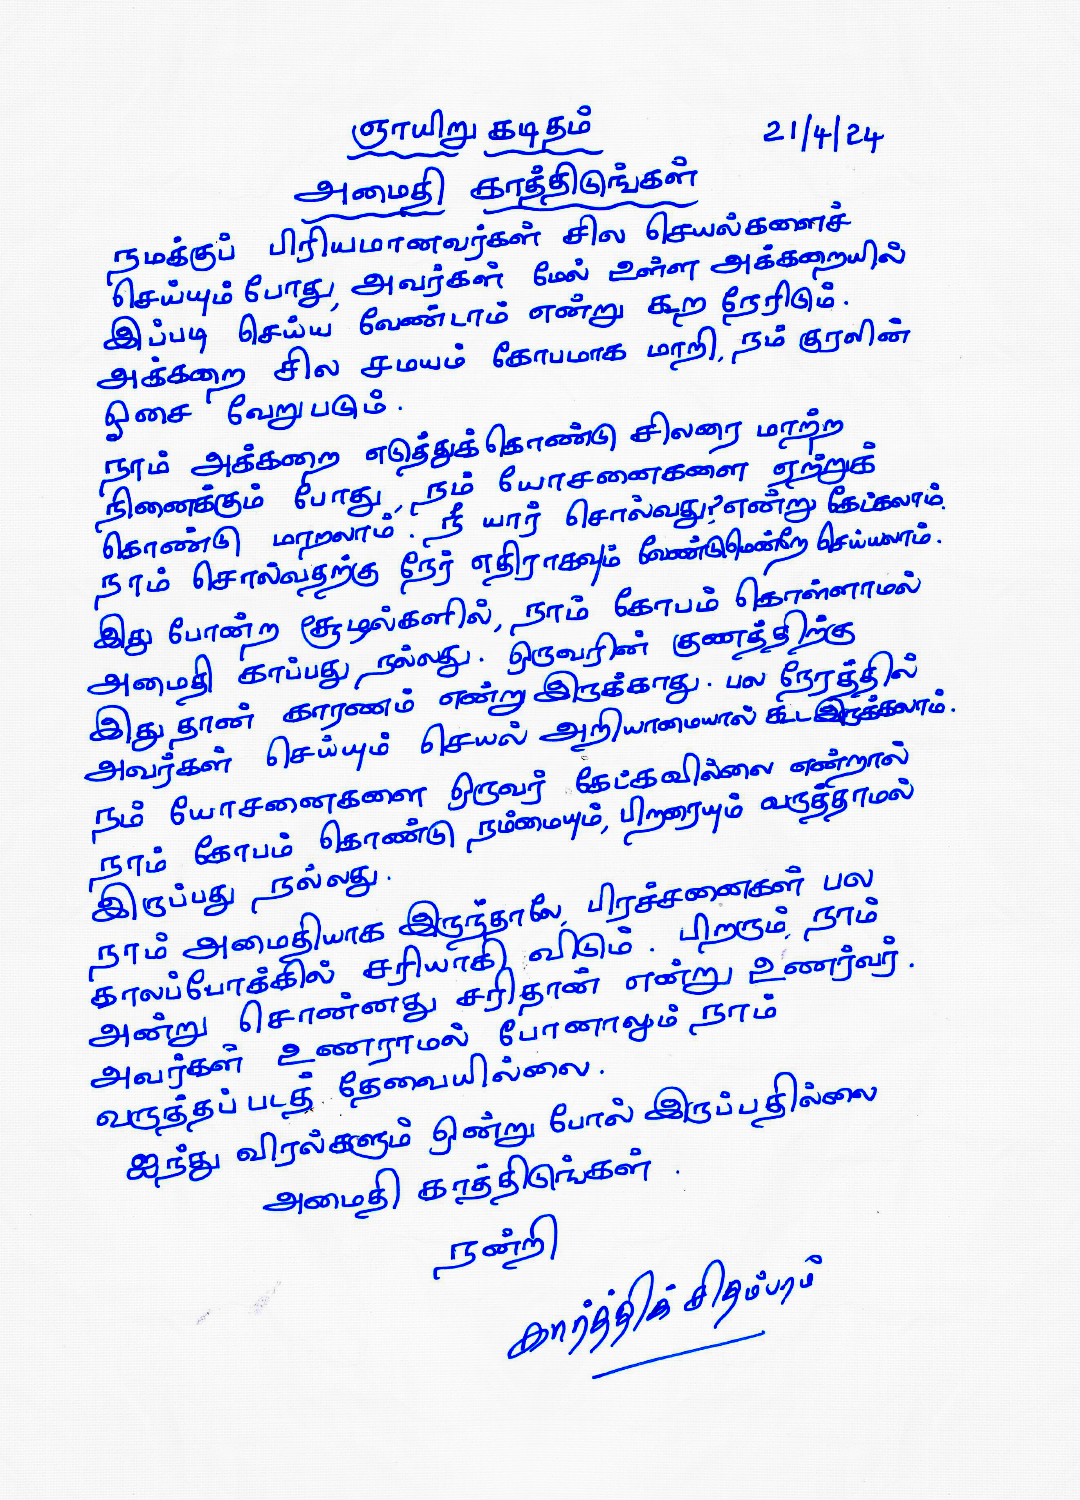 ஞாயிறு கடிதம் 21/4/24
அமைதி காத்திடுங்கள்
நமக்குப் பிரியமானவர்கள் சில செயல்களைச்
செய்யும் போது, அவர்கள் மேல் உள்ள அக்கறையில்
இப்படி செய்ய வேண்டாம் என்று கூற நேரிடும்.
அக்கறை சில சமயம் கோபமாக மாறி, நம் குரலின்
ஓசை வேறுபடும்.
நாம் அக்கறை எடுத்துக்கொண்டு சிலரை மாற்ற
நினைக்கும் போது, நம் யோசனைகளை ஏற்றுக்
கொண்டு மாறலாம். நீ யார் சொல்வது? என்று கேட்கலாம்.
நாம் சொல்வதற்கு நேர் எதிராகவும் வேண்டுமென்றே செய்யலாம்.
இது போன்ற சூழல்களில், நாம் கோபம் கொள்ளாமல்
அமைதி காப்பது நல்லது. ஒருவரின் குணத்திற்கு
இது தான் காரணம் என்று இருக்காது. பல நேரத்தில்
அவர்கள் செய்யும் செயல் அறியாமையால் கூட இருக்கலாம்.
நம் யோசனைகளை ஒருவர் கேட்கவில்லை என்றால்
நாம் கோபம் கொண்டு நம்மையும், பிறரையும் வருத்தாமல்
இருப்பது நல்லது.
நாம் அமைதியாக இருந்தாலே, பிரச்சனைகள் பல
காலப்போக்கில் சரியாகி விடும். பிறரும், நாம்
அன்று சொன்னது சரிதான் என்று உணர்வர்.
அவர்கள் உணராமல் போனாலும் நாம்
வருத்தப் படத் தேவையில்லை.
ஐந்து விரல்களும் ஒன்று போல் இருப்பதில்லை
அமைதி காத்திடுங்கள்.
நன்றி
கார்த்திக் சிதம்பரம்